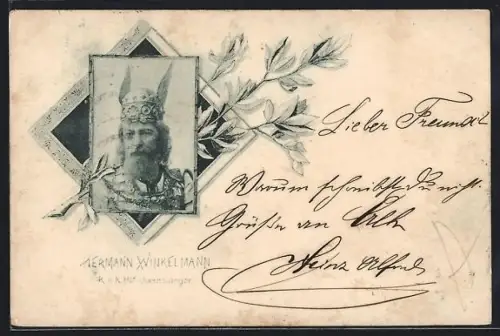 HERMANN WINKELMANN
K. u. K. Hof-Opernsänger
Lieber Freund!
Warum schreibst du nicht.
Grüße an Alle
Heinz Alfred